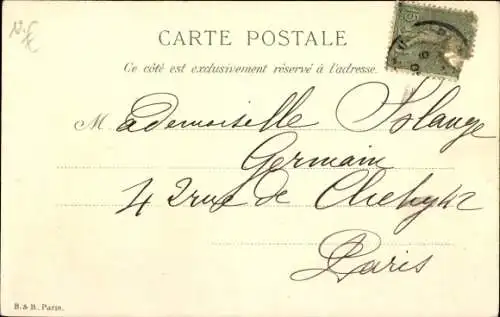 CARTE POSTALE
Ce côté est exclusivement réservé à l'adresse.
Mademoiselle Solange
Germain
42 rue de Clichy 42
Paris
B. & B., Paris.